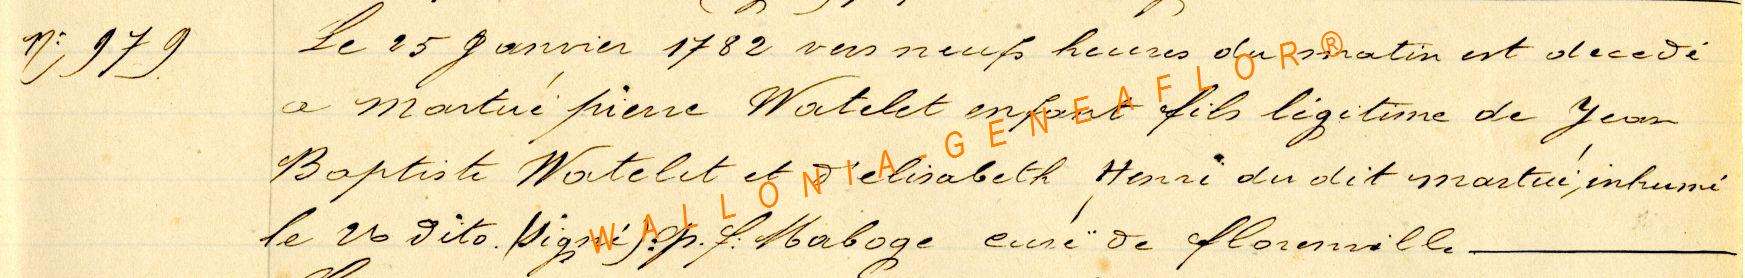 N: 979 Le 25 Janvier 1782 vers neuf heures du matin est decedé
a martué pierre Watelet enfant fils légitime de Jean
Baptiste Watelet et d'elisabeth Henri du dit martué, inhumé
le 26 dito. (signé): p. f: Maboge curé de florenville
WALLONIA-GENEAFLOR®